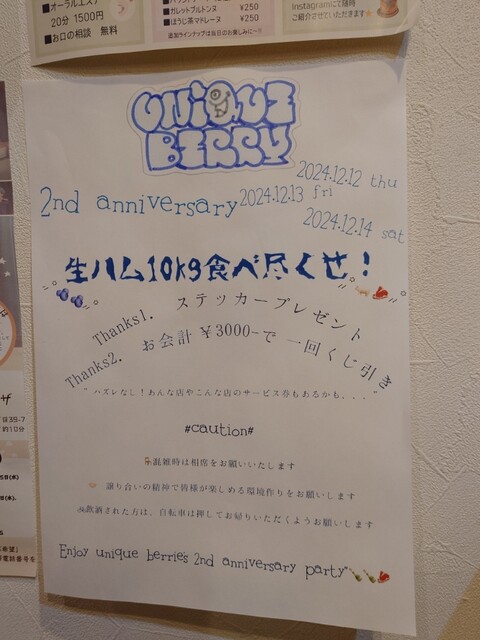 ■オーラルエステ
20分 1500円
■お口の相談 無料
■ガレットブルトンヌ ¥250
■ほうじ茶マドレーヌ ¥250
追加ラインナップは当日のお楽しみに〜!!
Instagramにて随時
ご紹介させていただきます
UNIQUE
BERRY
2nd anniversary
2024.12.12 thu
2024.12.13 fri
2024.12.14 sat
生ハム10kg食べ尽くせ!
Thanks1. ステッカープレゼント
Thanks2. お会計 ¥3000-で 一回くじ引き
ハズレなし!あんな店やこんな店のサービス券もあるかも...
#caution#
混雑時は相席をお願いいたします
譲り合いの精神で皆様が楽しめる環境作りをお願いします
飲酒された方は、自転車は押してお帰りいただくようお願いします
Enjoy unique berrie's 2nd anniversary party